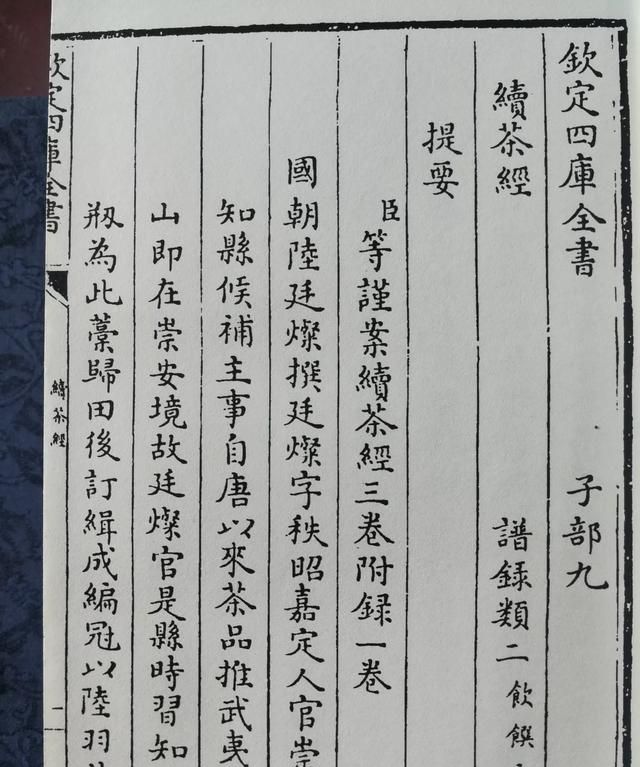 欽定四庫全書 子部九
續茶經 譜録類二 飲饌
提要
臣等謹案續茶經三卷附録一卷
國朝陸廷燦撰廷燦字秩昭嘉定人官崇
知縣候補主事自唐以來茶品推武夷
山即在崇安境故廷燦官是縣時習知
剏為此藁歸田後訂緝成編冠以陸羽
欽定四庫全書 續茶經 一